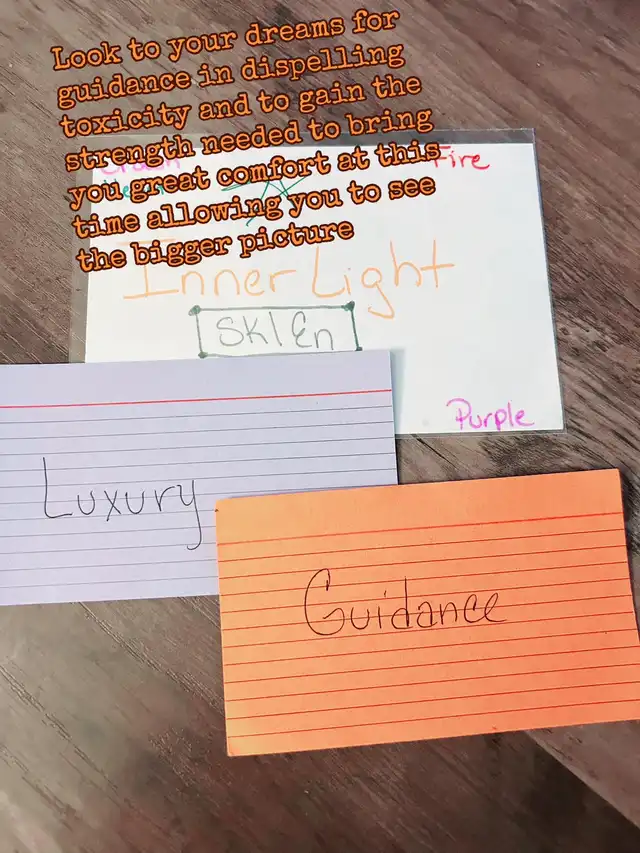 Look to your dreams for
guidance in dispelling
toxicity and to gain the
strength needed to bring
you great comfort at this
time allowing you to see
the bigger picture
Fire
Inner Light
SKlEn
Purple
Luxury
Guidance